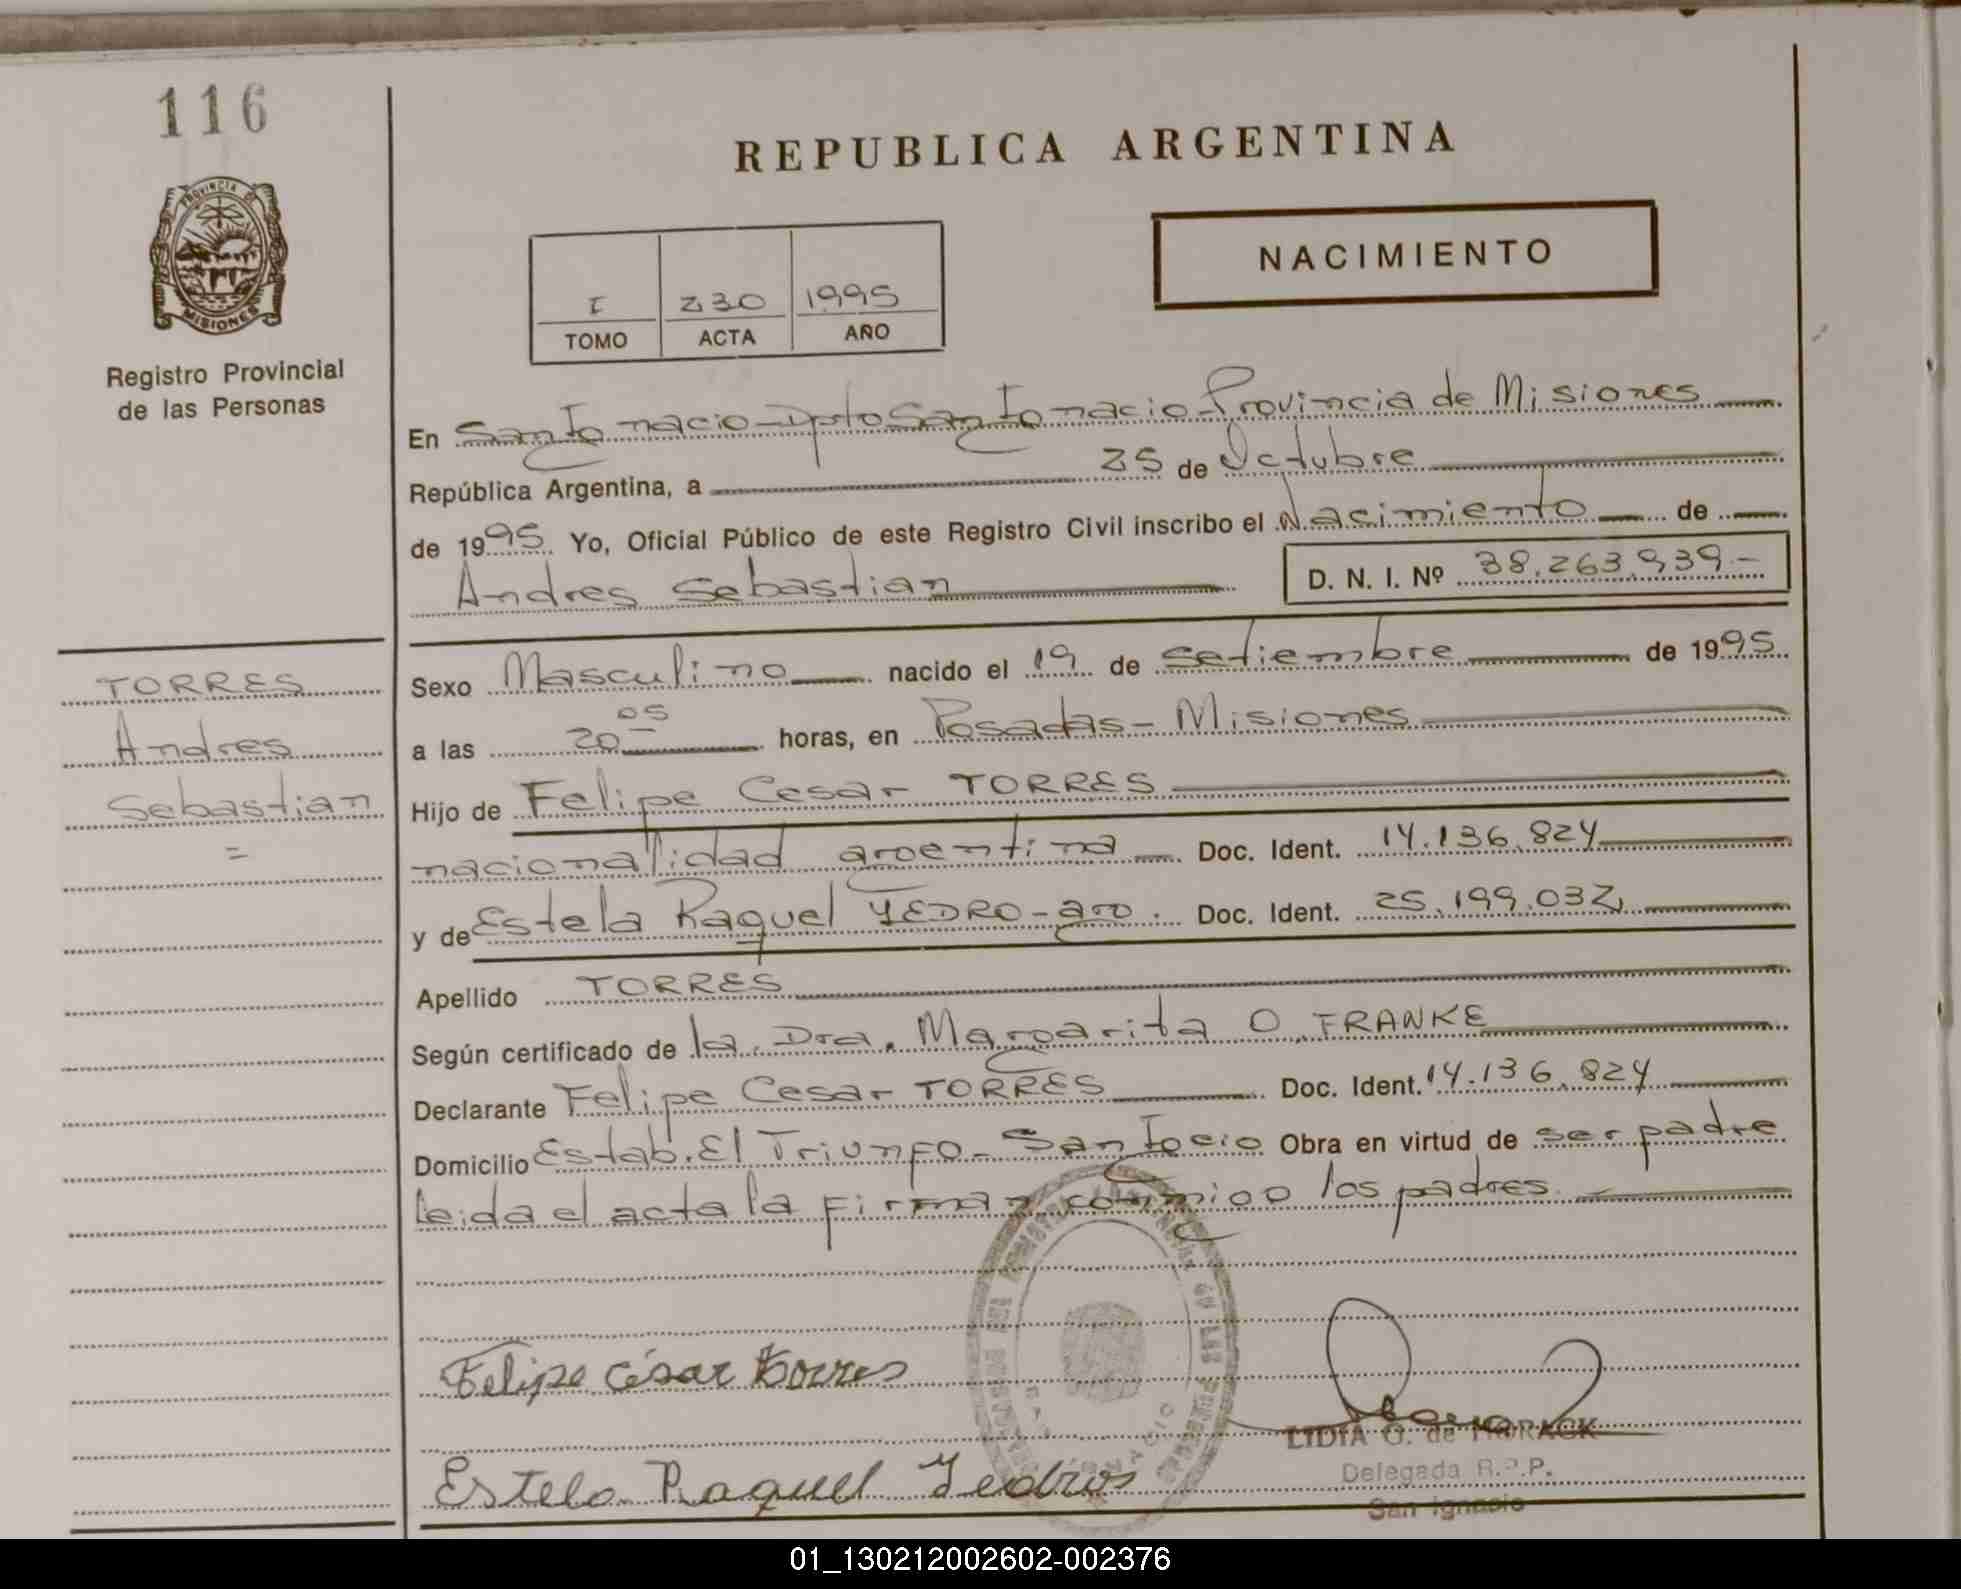 116
REPUBLICA ARGENTINA
PROVINCIA DE
MISIONES
Registro Provincial
de las Personas
NACIMIENTO
I 230 1995
TOMO ACTA AÑO
En San Ignacio - Dpto San Ignacio - Provincia de Misiones
República Argentina, a 25 de Octubre
de 1995 Yo, Oficial Público de este Registro Civil inscribo el Nacimiento de
Andres Sebastian D. N. I. Nº 38.263.939.-
TORRES
Andres
Sebastian
=
Sexo Masculino nacido el 19 de Setiembre de 1995
a las 20 05 horas, en Posadas - Misiones
Hijo de Felipe Cesar TORRES
nacionalidad argentina Doc. Ident. 14.136.824
y de Estela Raquel YEDRO - arg. Doc. Ident. 25.199.032
Apellido TORRES
Según certificado de la Dra. Margarita O. FRANKE
Declarante Felipe Cesar TORRES Doc. Ident. 14.136.824
Domicilio Estab. El Triunfo - San Igcio Obra en virtud de ser padre
leida el acta la firman conmigo los padres.
Felipe César Torres
LIDIA O. de HORACK
Delegada R.P.P.
San Ignacio
Estela Raquel Yedros
01_130212002602-002376